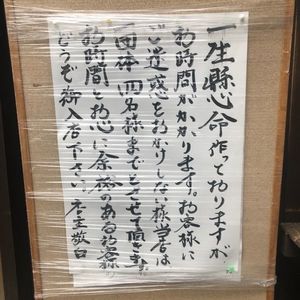 一生懸命作っておりますが
お時間がかかります。お客様に
ご迷惑をおかけしない様当店は
一団体四名様までとさせて頂きます。
お時間と お心に余裕のあるお客様
どうぞ御入店下さい。店主敬白